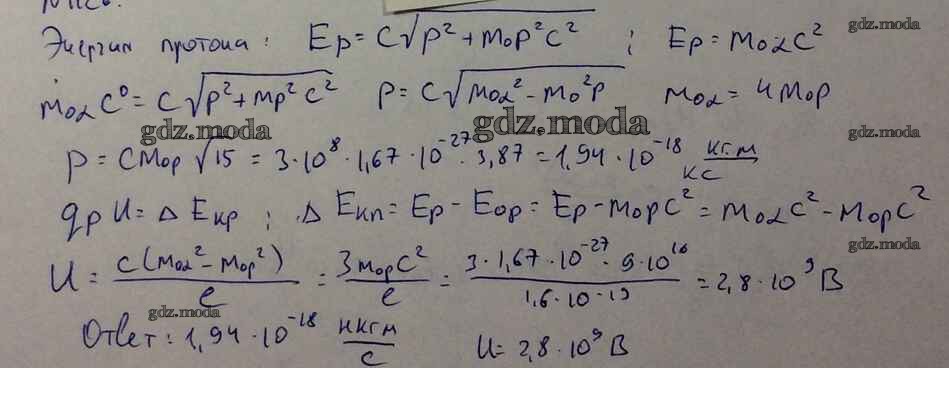 Энергия протона: Ep = C√p² + m₀p²c² ; Ep = m₀αC²
m₀αC⁰ = C√p² + mp²c² p = C√m₀α² - m₀²p m₀α = 4m₀p
gdz.moda
gdz.moda
gdz.moda
gdz.moda
p = Cm₀p√15 = 3·10⁸·1,67·10⁻²⁷·3,87 = 1,94·10⁻¹⁸ кг.м/кс
qpU = ΔEкр ; ΔEкп = Ep - E₀p = Ep - m₀pC² = m₀αC² - m₀pC²
gdz.moda
U = c(m₀α² - m₀p²)/e = 3m₀pC²/e = 3·1,67·10⁻²⁷·9·10¹⁶/1,6·10-19 = 2,8·10⁹ В
gdz.moda
Ответ: 1,94·10⁻¹⁸ нкгм/с U = 2,8·10⁹ В